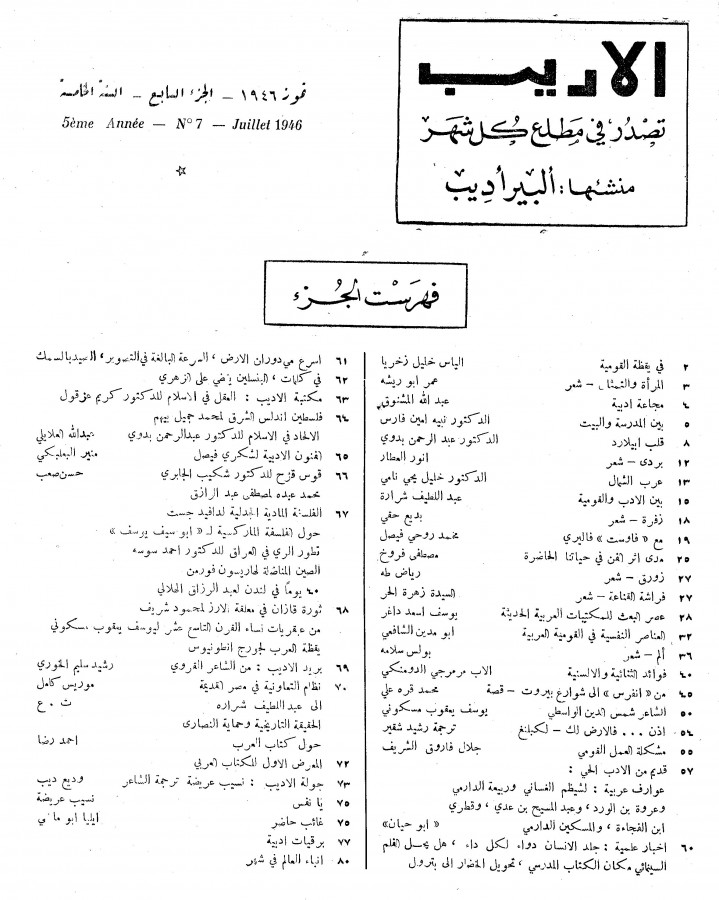 الاديب
تصدر في مطلع كل شهر
منشئها : ألبير أديب
تموز ١٩٤٦ – الجزء السابع – السنة الخامسة
5ème Année — N° 7 — Juillet 1946
فهرست الجزء
٢ في يقظة القومية الياس خليل زخريا
٣ المرأة والتمثال – شعر عمر ابو ريشه
٤ مجاعة ادبية عبد الله المشنوق
٥ بين المدرسة والبيت الدكتور نبيه امين فارس
٨ قلب ابيلارد الدكتور عبد الرحمن بدوي
١٢ بردى – شعر انور العطار
١٣ عرب الشمال الدكتور خليل يحيى نامي
١٥ بين الادب والقومية عبد اللطيف شرارة
١٨ زفرة – شعر بديع حقي
١٩ مع « فاوست » فاليري محمد روحي فيصل
٢٥ مدى اثر الفن في حياتنا الحاضرة مصطفى فروخ
٢٧ زورق – شعر رياض طه
٢٧ فراشة القناعة – شعر السيدة زهرة الحر
٢٨ عصر البعث للمكتبات العربية الحديثة يوسف اسعد داغر
٣٢ العناصر النفسية في القومية العربية ابو مدين الشافعي
٣٦ ألم – شعر بولس سلامه
٤٠ فوائد الثنائية والالسنية الاب مرمرجي الدومنكي
٤٥ من « انفرس » الى شوارع بيروت – قصة محمد قره علي
٥٠ الشاعر شمس الدين الواسطي يوسف يعقوب مسكوني
٥٤ اذن ... فالارض لك – لكبلنغ ترجمة رشيد شقير
٥٥ مشكلة العمل القومي جلال فاروق الشريف
٥٧ قديم من الادب الحي :
عوارف عربية : لشيظم الغساني وربيعة الدارمي
وعروة بن الورد ، وعبد المسيح بن عدي ، وقطري
ابن الفجاءة ، والمسكين الدارمي « ابو حيان »
٦٠ اخبار علمية : جلد الانسان دواء لكل داء ، هل يحل الفلم
السينمائي مكان الكتاب المدرسي ، تحويل الخضار الى بترول
٦١ اسرع من دوران الارض ، السرعة البالغة في التصوير ، الصيد بالسمك
٦٢ في كلمات ، البنسلين يقضي على الزهري
٦٣ مكتبة الاديب : العقل في الاسلام للدكتور كريم عزقول
٦٤ فلسطين اندلس الشرق لمحمد جميل بيهم
الالحاد في الاسلام للدكتور عبدالرحمن بدوي عبدالله العلايلي
٦٥ الفنون الادبية لشكري فيصل منير البعلبكي
٦٦ قوس قزح للدكتور شكيب الجابري حسن صعب
محمد عبده لمصطفى عبد الرازق
٦٧ الفلسفة المادية الجدلية لدافيد جست
حول الفلسفة الماركسية لـ « ابو سيف يوسف »
تطور الري في العراق للدكتور احمد سوسه
الصين المناضلة لهاريسون فورمن
٤٠ يوماً في لندن لعبد الرزاق الهلالي
٦٨ ثورة قازان في معلقة الارز لمحمود شريف
من عبقريات نساء القرن التاسع عشر ليوسف يعقوب مسكوني
يقظة العرب لجورج انطونيوس
٦٩ بريد الاديب : من الشاعر القروي رشيد سليم الخوري
٧٠ نظام التعاونية في مصر القديمة موريس كامل
الى عبد اللطيف شراره ت . ع
الحقيقة التاريخية وحماية النصارى
حول كتاب العرب احمد رضا
٧٢ المعرض الاول للكتاب العربي
٧٣ جولة الاديب : نسيب عريضة ترجمة الشاعر وديع ديب
٧٥ يا نفس نسيب عريضة
٧٥ غائب حاضر ايليا ابو ماضي
٧٧ برقيات ادبية
٨٠ انباء العالم في شهر